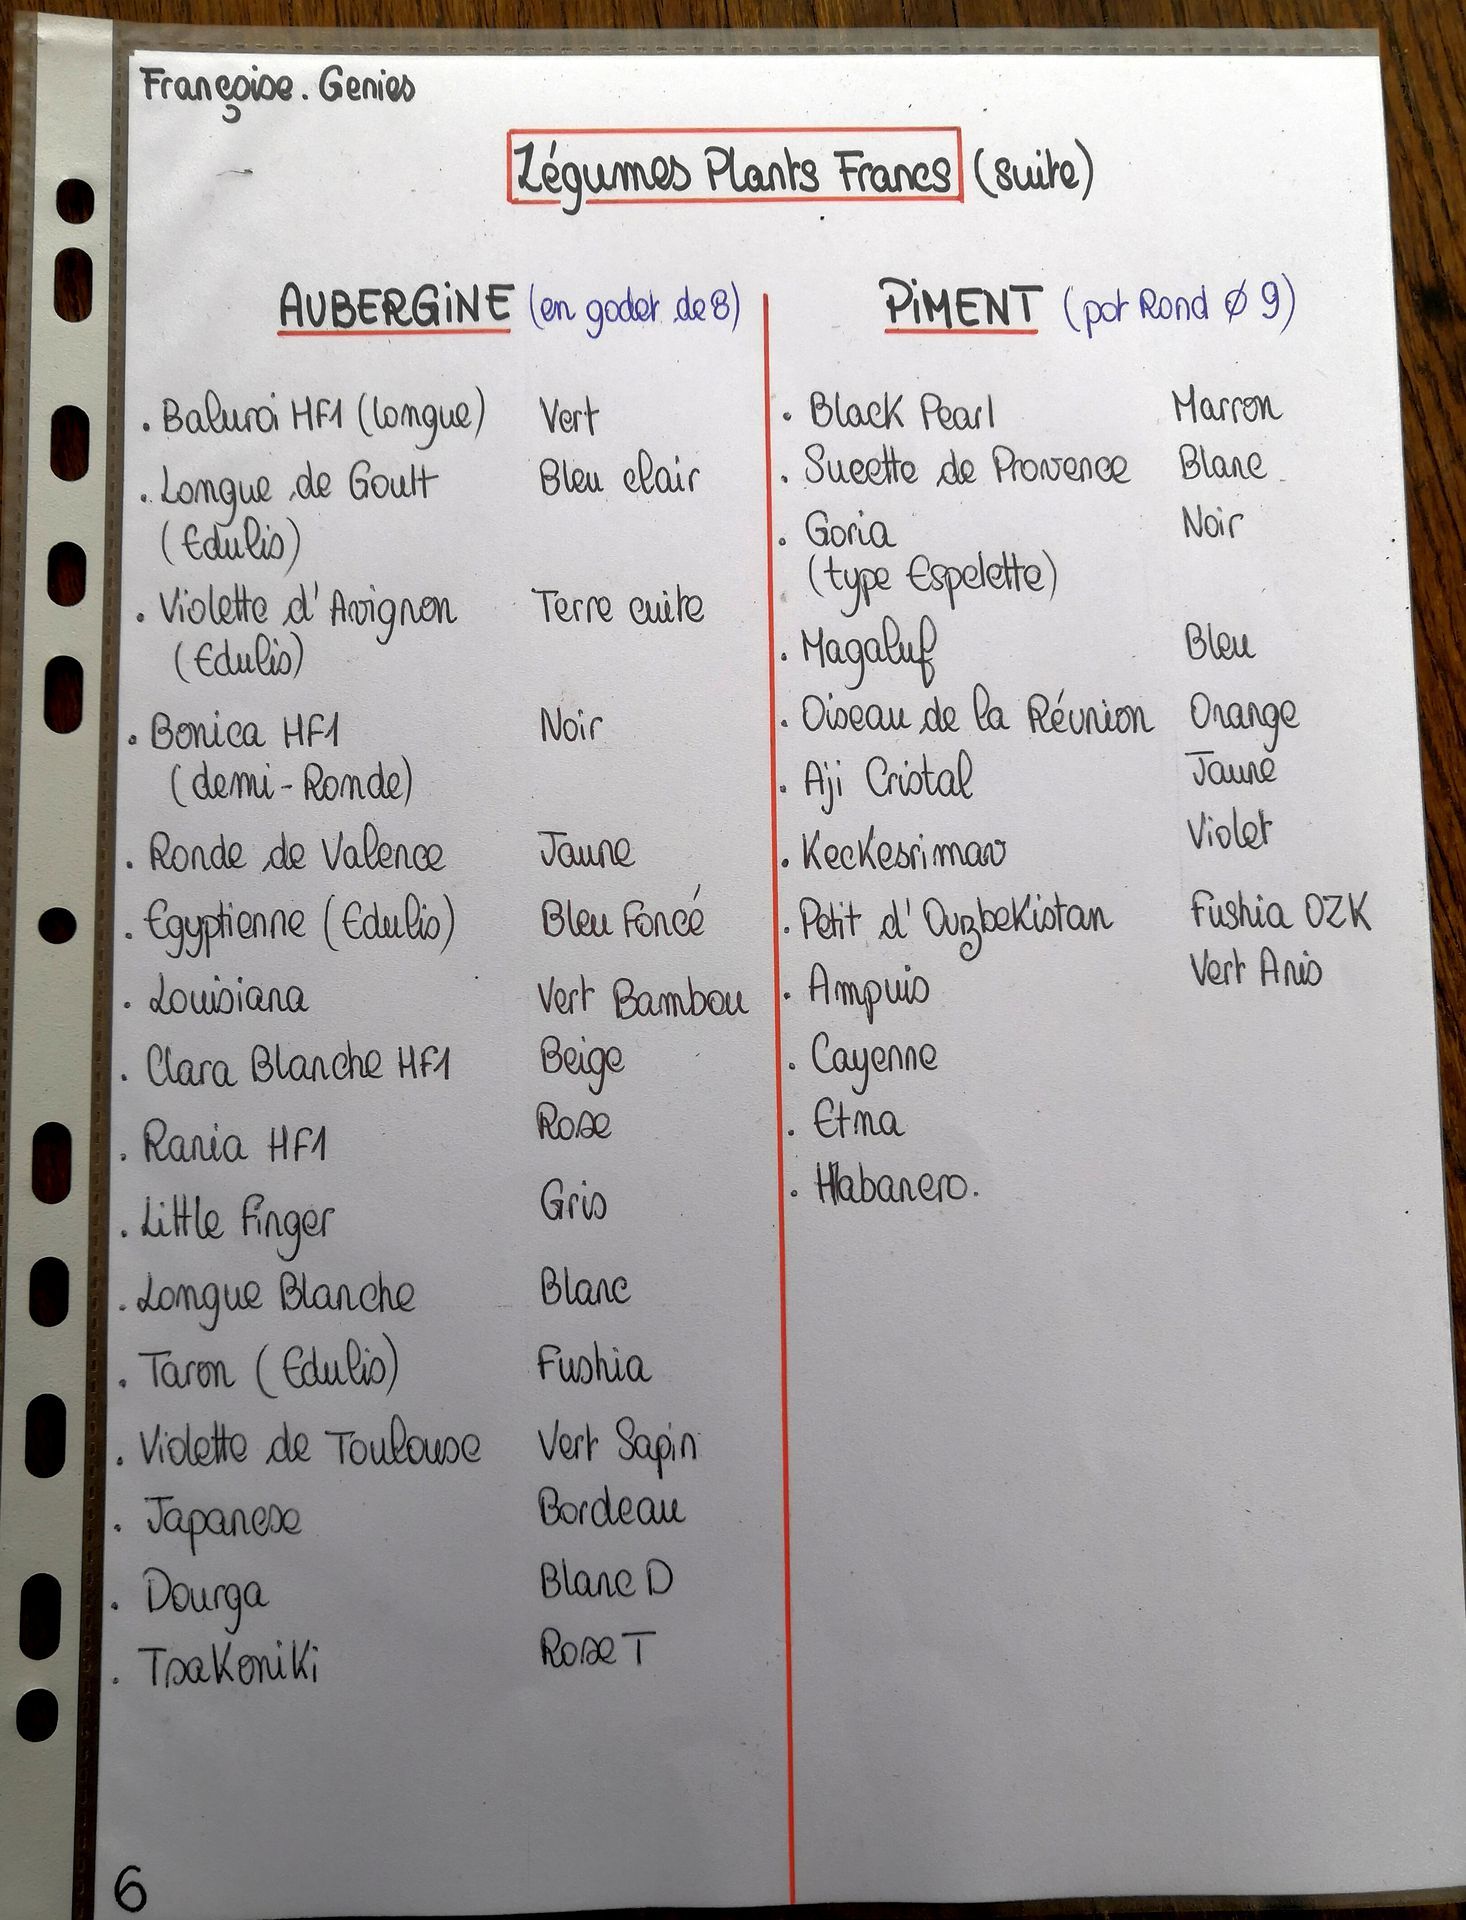 Françoise. Genies
Légumes Plants Francs (suite)
AUBERGINE (en godet de 8)
. Baluroi HF1 (longue) Vert
. Longue de Goult Bleu clair
(Edulis)
. Violette d'Avignon Terre cuite
(Edulis)
. Bonica HF1 Noir
(demi-Ronde)
. Ronde de Valence Jaune
. Egyptienne (Edulis) Bleu Foncé
. Louisiana Vert Bambou
. Clara Blanche HF1 Beige
. Rania HF1 Rose
. Little Finger Gris
. Longue Blanche Blanc
. Taron (Edulis) Fushia
. Violette de Toulouse Vert Sapin
. Japanese Bordeau
. Dourga Blanc D
. Tsakoniki Rose T
PIMENT (pot Rond Ø 9)
. Black Pearl Marron
. Sucette de Provence Blanc
. Goria Noir
(type Espelette)
. Magaluf Bleu
. Oiseau de la Réunion Orange
. Aji Cristal Jaune
. Keckesrimav Violet
. Petit d'Ouzbekistan Fushia OZK
. Ampuis Vert Anis
. Cayenne
. Etna
. Habanero.
6